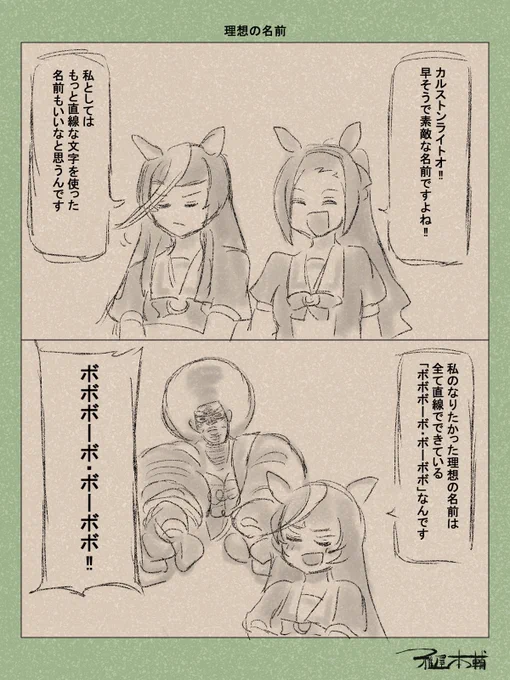 理想の名前
カルストンライトオ!!
早そうで素敵な名前ですよね!!
私としては
もっと直線な文字を使った
名前もいいなと思うんです
私のなりたかった理想の名前は
全て直線でできている
「ボボボーボ・ボーボボ」なんです
ボボボーボ・ボーボボ!!